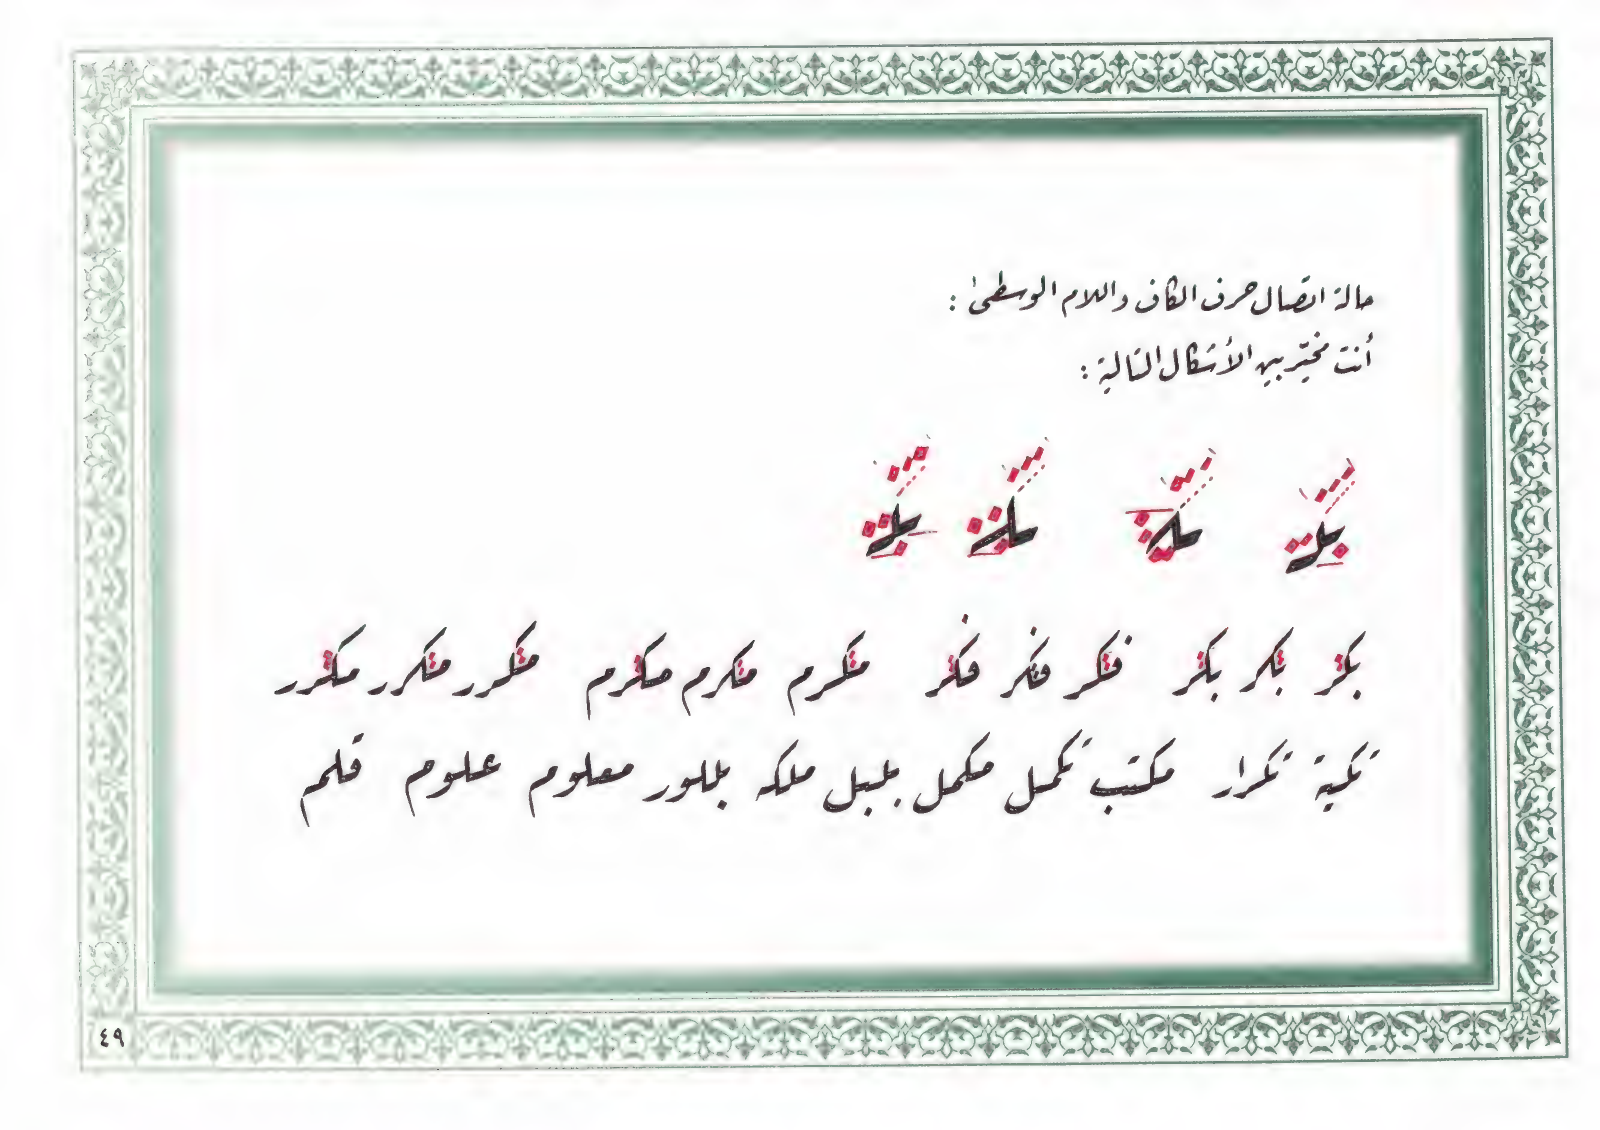 حالة اتصال حرف الكاف واللام الوسطى :
أنت مخيّر بين الأشكال التالية :
بكر بكر بكر فكر فكر فكر مكرم مكرم مكرم مكرر مكرر مكرر
تكية تكرار مكتب تكمل مكمل بلبل ملكه بللور معلوم علوم قلم
٤٩